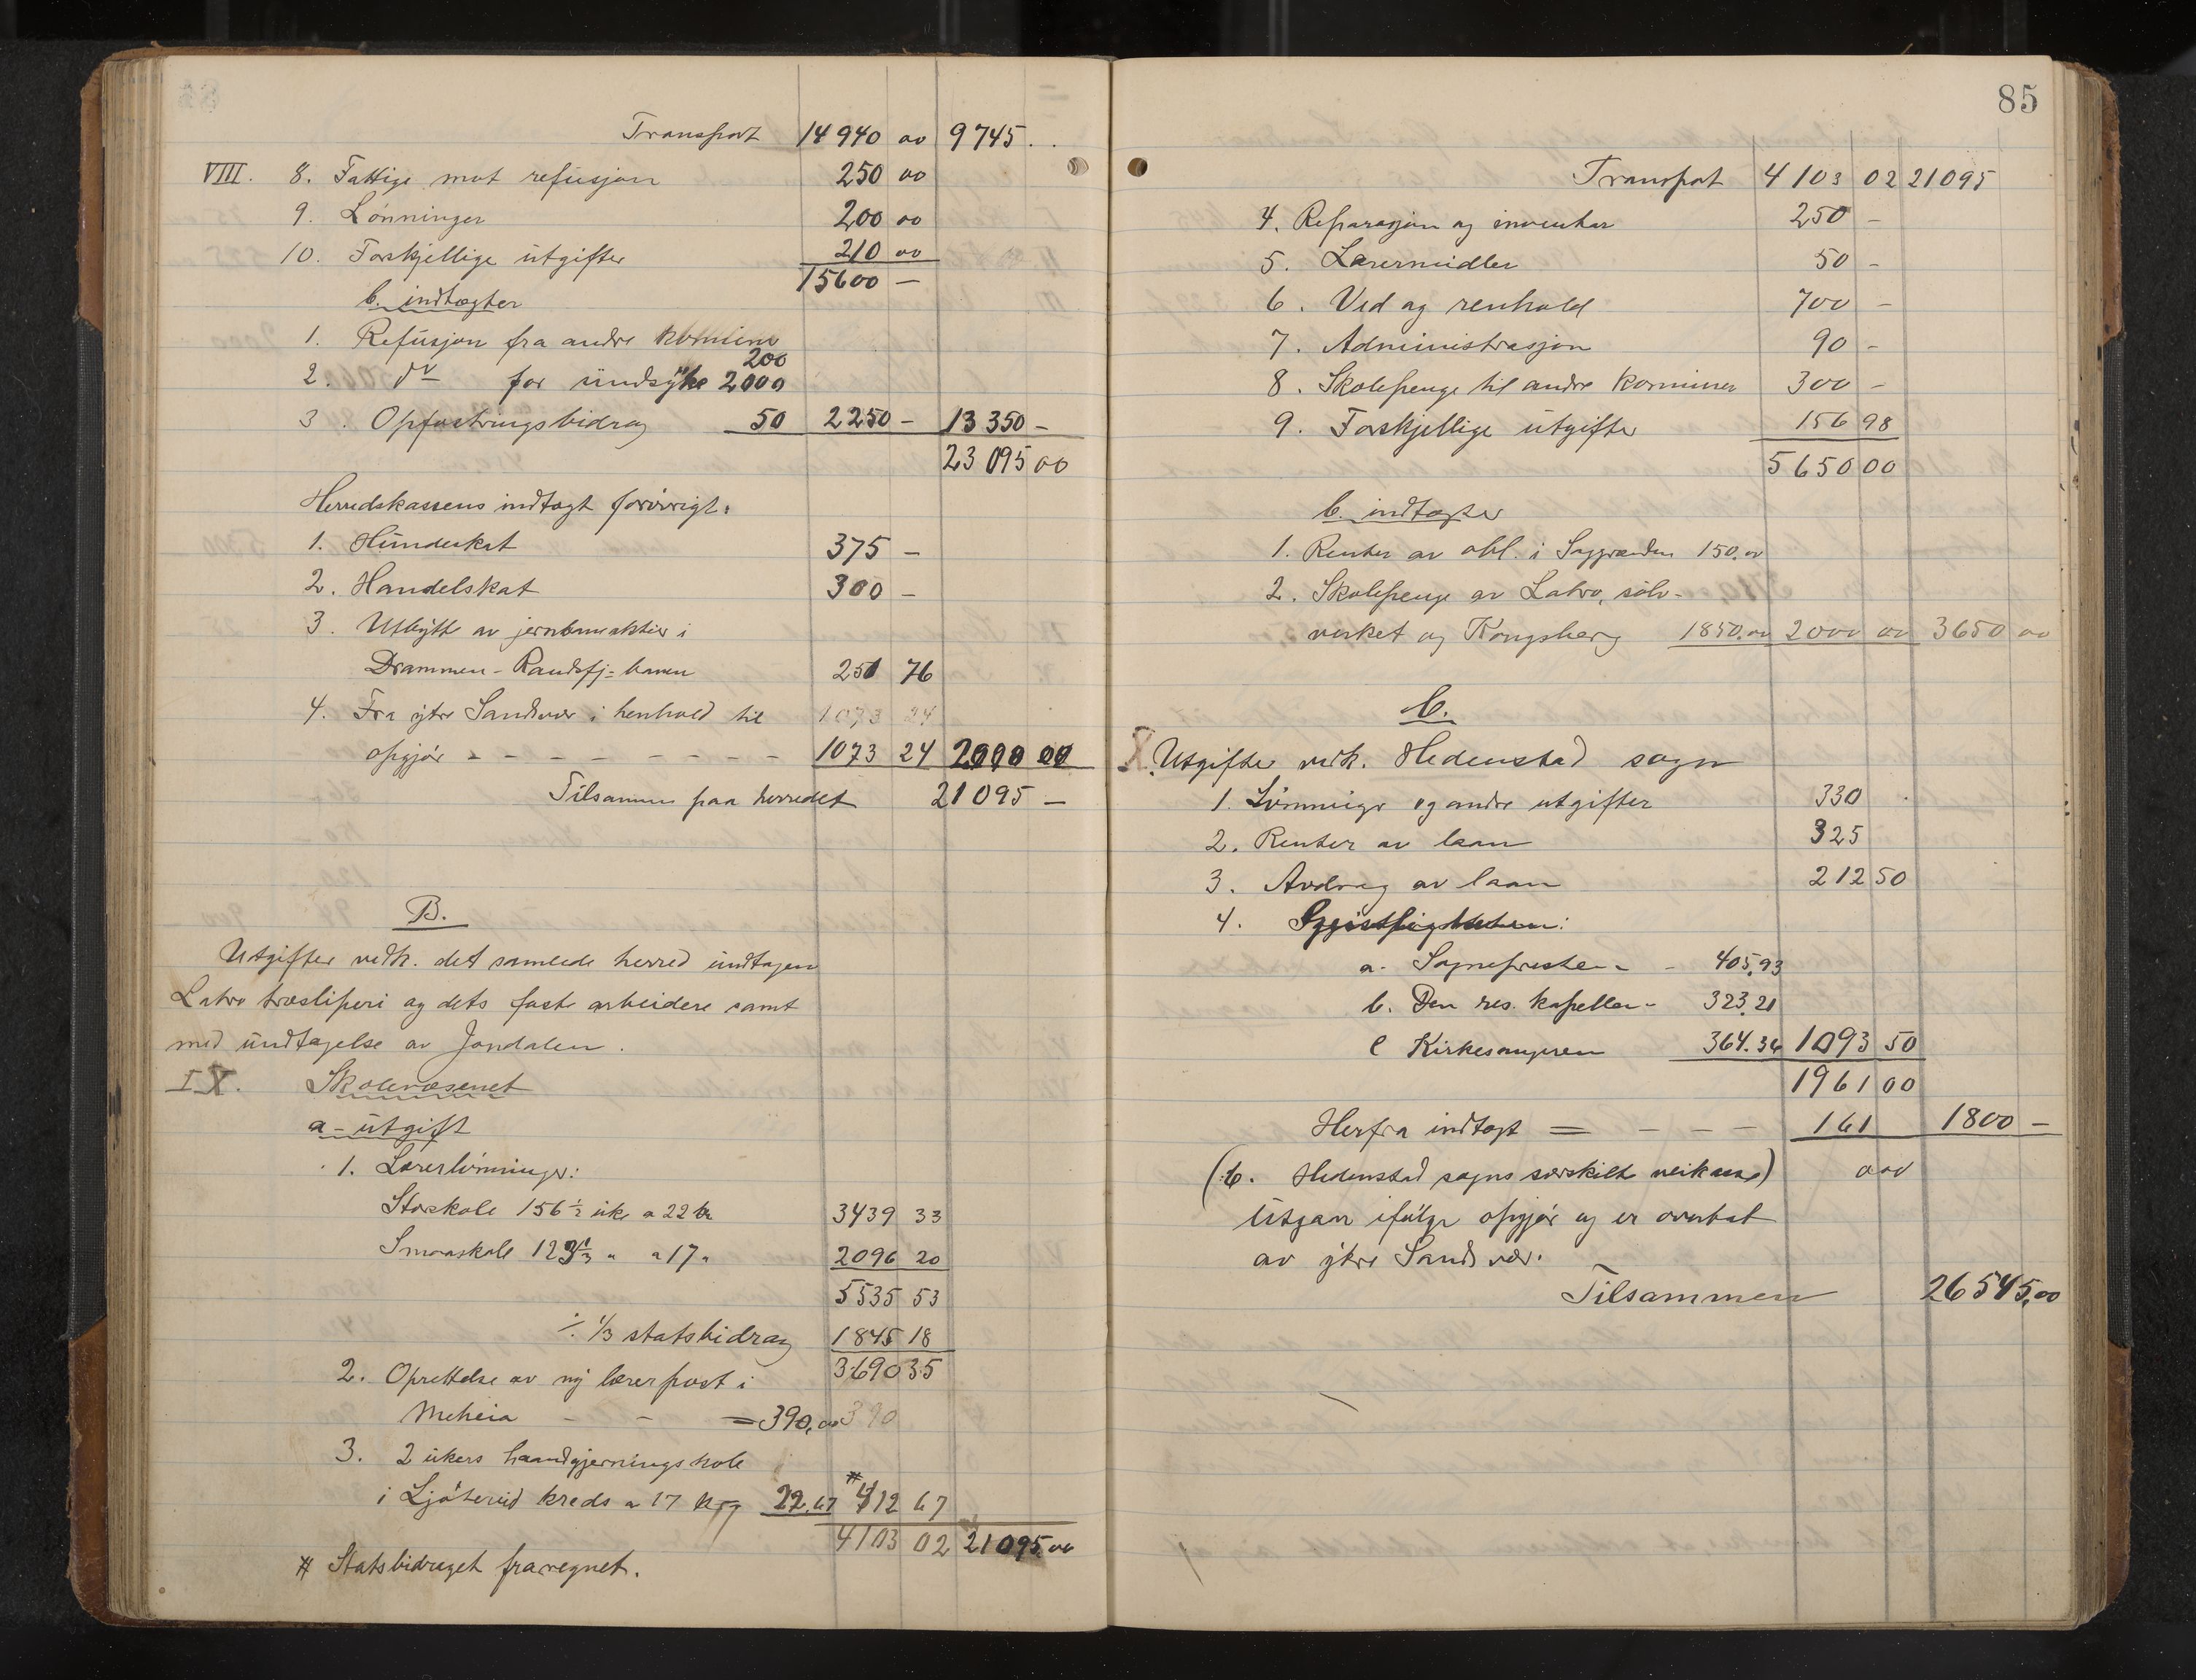 Transport 14940 00 9745 . .
VIII. 8. Fattige mot refusjon 250 00
9. Lønninger 200 00
10. Forskjellige utgifter 210 00
15600 —
b. indtægter
1. Refusjon fra andre kommun 200
2. do for sindsyke 2000
3. Opfostringsbidrag 50 2250 - 13350 -
23095 00
Herredskassens indtægt forøvrigt:
1. Hundeskat 375 —
2. Handelskat 300 —
3. Utbytte av jernbaneaktier i
Drammen - Randsfj- banen 251 76
4. Fra ytre Sandsvær i henhold til 1073 24
opgjør - - - - - - - - - 1073 24 2000 00
Tilsammen paa herredet 21095 —
B.
Utgifter vedk. det samlede herred undtagen
Labro træsliperi og dets faste arbeidere samt
med undtagelse av Jondalen.
IX. Skolevæsenet
a - utgift
1. Lærerlønninger:
Storskole 156 1/2 uke a 22 kr 3439 33
Smaaskole 123 1/3 " a 17 " 2096 20
5535 53
÷ 1/3 statsbidrag 1845 18
3690 35
2. Oprettelse av ny lærerpost i
Meheia - - = 390,00 390
3. 2 ukers haandgjerningskole
i Ljøterud kreds a 17 kr 22.67 # 412 67
4103 02 21095.00
# Statsbidraget fraregnet.
85
Transport 4103 02 21095
4. Reparasjon og inventar 250 -
5. Lærermidler 50 -
6. Ved og renhold 700 -
7. Administrasjon 90 -
8. Skolepenge til andre kommuner 300 -
9. Forskjellige utgifter 156 98
5650 00
b. indtægter
1. Renter av obl. i 150.00
2. Skolepenge av Labro, sølv-
verket og Kongsberg 1850.00 2000 00 3650 00
C.
X. Utgifter vedk. Hedenstad sogn
1. Lønninger og andre utgifter 330 .
2. Renter av laan 325
3. Avdrag av laan 212 50
4. Geistligheten:
a. Sognepresten - - 405.93
b. Den res. kapellan - 323.21
c Kirkesangeren 364.36 1093 50
1961 00
Herfra indtægt = - - - 161 1800 —
(6. Hedenstad sogns særskilte veikasse) 000
Utgaar ifølge opgjør og er overtat
av ytre Sandsvær.
Tilsammen 26545,00